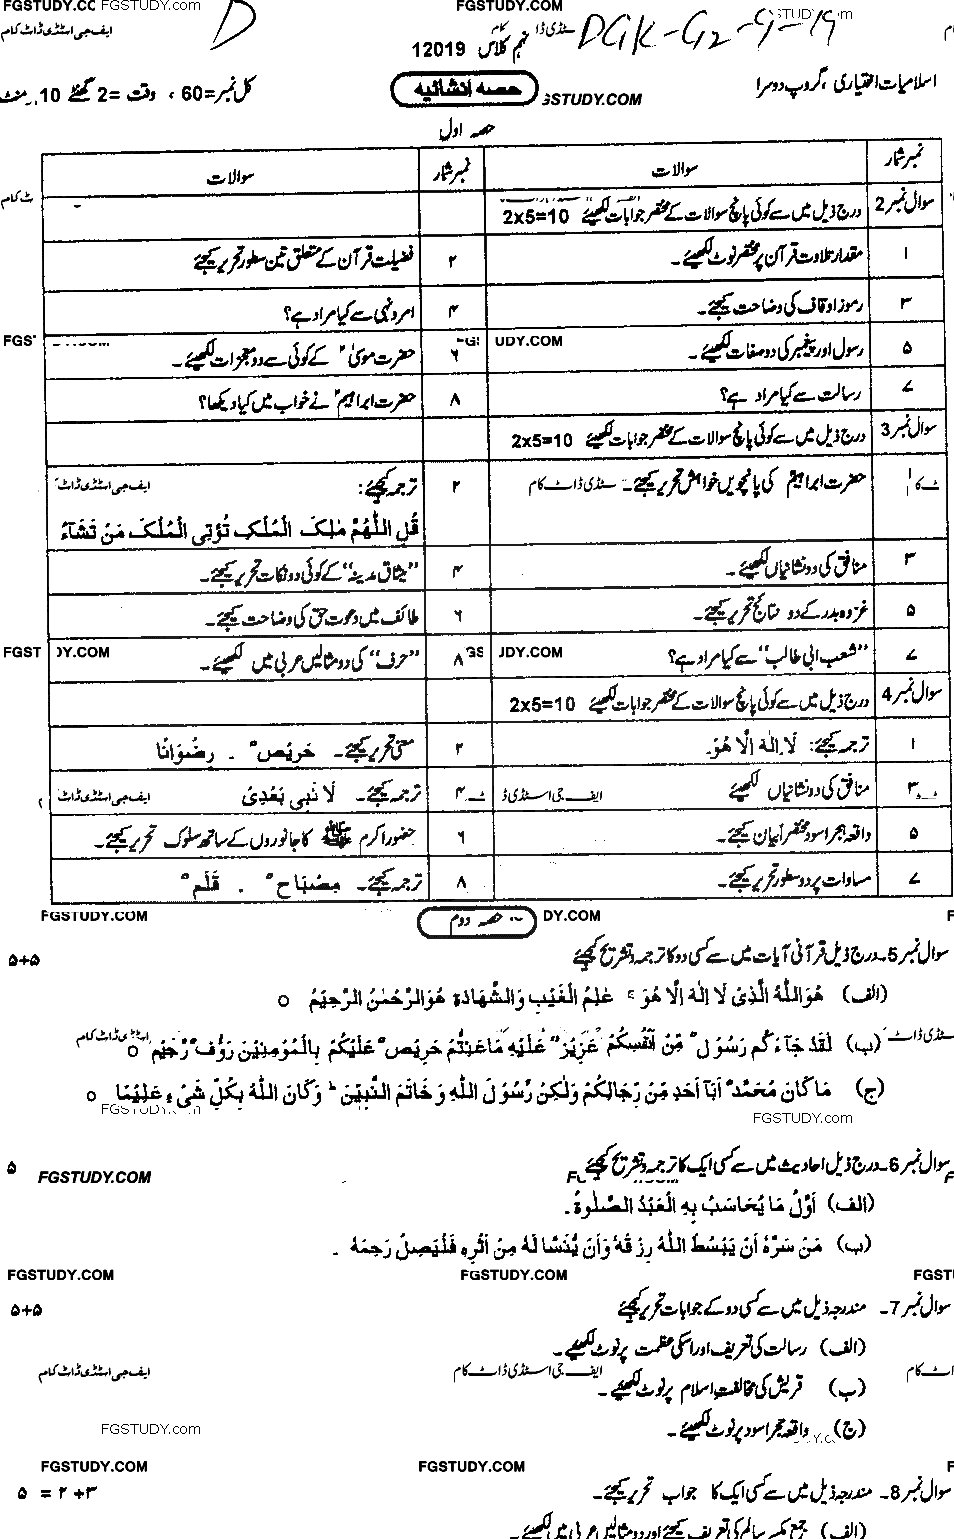 FGSTUDY.CC FGSTUDY.com FGSTUDY.COM STUDY m
ایف جی اسٹڈی ڈاٹ کام D سٹڈی ڈا کام DGK-G2-9-19
نہم کلاس 12019
اسلامیات اختیاری ، گروپ دوسرا GSTUDY.COM حصہ انشائیہ کل نمبر=60 ، وقت =2 گھنٹے 10 منٹ
حصہ اول
نمبر شمار سوالات نمبر شمار سوالات
سوال نمبر 2 درج ذیل میں سے کوئی پانچ سوالات کے مختصر جوابات لکھیئے 2x5=10
۱ مقدار تلاوت قرآن پر مختصر نوٹ لکھیئے۔ ۲ فضیلت قرآن کے متعلق تین سطور تحریر کیجئے
۳ رموز اوقاف کی وضاحت کیجئے۔ ۴ امر و نہی سے کیا مراد ہے؟
FGS UDY.COM
۵ رسول اور پیغمبر کی دو صفات لکھیئے۔ ۶ حضرت موسیٰ ؑ کے کوئی سے دو معجزات لکھیئے۔
۷ رسالت سے کیا مراد ہے؟ ۸ حضرت ابراہیم ؑ نے خواب میں کیا دیکھا؟
سوال نمبر 3 درج ذیل میں سے کوئی پانچ سوالات کے مختصر جوابات لکھیئے 2x5=10
۱ حضرت ابراہیم ؑ کی پانچویں خواہش تحریر کیجئے۔ سٹڈی ڈاٹ کام ۲ ترجمہ کیجئے: ایف جی اسٹڈی ڈاٹ
قُلِ اللّٰهُمَّ مٰلِکَ الْمُلْکِ تُؤْتِی الْمُلْکَ مَنْ تَشَآءُ
۳ منافق کی دو نشانیاں لکھیئے۔ ۴ ”میثاق مدینہ“ کے کوئی دو نکات تحریر کیجئے۔
۵ غزوہ بدر کے دو نتائج تحریر کیجئے۔ ۶ طائف میں دعوت حق کی وضاحت کیجئے۔
۷ ”شعب ابی طالب“ سے کیا مراد ہے؟ ۸ ”حرف“ کی دو مثالیں عربی میں لکھیئے۔
FGST DY.COM GS JDY.COM
سوال نمبر 4 درج ذیل میں سے کوئی پانچ سوالات کے مختصر جوابات لکھیئے 2x5=10
۱ ترجمہ کیجئے: لَا اِلٰهَ اِلَّا هُوَ۔ ۲ معنی تحریر کیجئے۔ حَرِیْص ٌ ۔ رِضْوَانًا
۳ منافق کی دو نشانیاں لکھیئے ایف جی اسٹڈی ڈ ۴ ترجمہ کیجئے۔ لَا نَبِی بَعْدِیْ ایف جی اسٹڈی ڈاٹ
۵ واقعہ حجر اسود مختصراً بیان کیجئے۔ ۶ حضور اکرم ﷺ کا جانوروں کے ساتھ سلوک تحریر کیجئے۔
۷ مساوات پر دو سطور تحریر کیجئے۔ ۸ ترجمہ کیجئے۔ مِصْبَاح ٌ ۔ قَلَم ٌ
FGSTUDY.COM حصہ دوم DY.COM
سوال نمبر 5۔ درج ذیل قرآنی آیات میں سے کسی دو کا ترجمہ و تشریح کیجئے ۵+۵
(الف) هُوَ اللّٰهُ الَّذِیْ لَا اِلٰهَ اِلَّا هُوَ ۚ عٰلِمُ الْغَیْبِ وَالشَّهَادَةِ هُوَ الرَّحْمٰنُ الرَّحِیْمُ ○
سٹڈی ڈاٹ اسٹڈی ڈاٹ کام
(ب) لَقَدْ جَآءَکُم رَسُوْل ٌ مِّنْ اَنْفُسِکُمْ عَزِیْز ٌ عَلَیْهِ مَاعَنِتُّمْ حَرِیْص ٌ عَلَیْکُمْ بِالْمُؤْمِنِیْنَ رَؤُف ٌ رَّحِیْم ٌ ○
(ج) مَا کَانَ مُحَمَّد ٌ اَبَآ اَحَدٍ مِّنْ رِّجَالِکُمْ وَلٰکِنْ رَّسُوْلَ اللّٰهِ وَ خَاتَمَ النَّبِیّٖنَ ؕ وَکَانَ اللّٰهُ بِکُلِّ شَیْءٍ عَلِیْمًا ○
FGSTUDY.com FGSTUDY.COM
سوال نمبر 6۔ درج ذیل احادیث میں سے کسی ایک کا ترجمہ و تشریح کیجئے ۵
FGSTUDY.COM
(الف) اَوَّلُ مَا یُحَاسَبُ بِهِ الْعَبْدُ الصَّلٰوةُ۔
(ب) مَنْ سَرَّهٗ اَنْ یَبْسُطَ اللّٰهُ رِزْقَهٗ وَاَنْ یُّنْسَأَ لَهٗ مِنْ اَثَرِهٖ فَلْیَصِلْ رَحِمَهٗ ۔
FGSTUDY.COM FGSTUDY.COM FGST
سوال نمبر 7۔ مندرجہ ذیل میں سے کسی دو کے جوابات تحریر کیجئے ۵+۵
(الف) رسالت کی تعریف اور اسکی عظمت پر نوٹ لکھیئے۔
ایف جی اسٹڈی ڈاٹ کام ایف جی اسٹڈی ڈاٹ کام اٹ کام
(ب) قریش کی مخالفت اسلام پر نوٹ لکھیئے۔
(ج) واقعہ حجر اسود پر نوٹ لکھیئے۔
FGSTUDY.com
FGSTUDY.COM FGSTUDY.COM F
سوال نمبر 8۔ مندرجہ ذیل میں سے کسی ایک کا جواب تحریر کیجئے۔ ۳+۲ = ۵
(الف) جمع مکسر سالم کی تعریف کیجئے اور دو مثالیں عربی میں لکھیئے۔